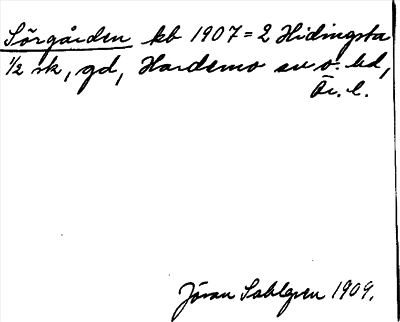 Sörgården kb 1907 = 2 Hidingsta
1/2 sk, gd, Hardemo sn ö. hd,
Ör. l.
Jöran Sahlgren 1909.